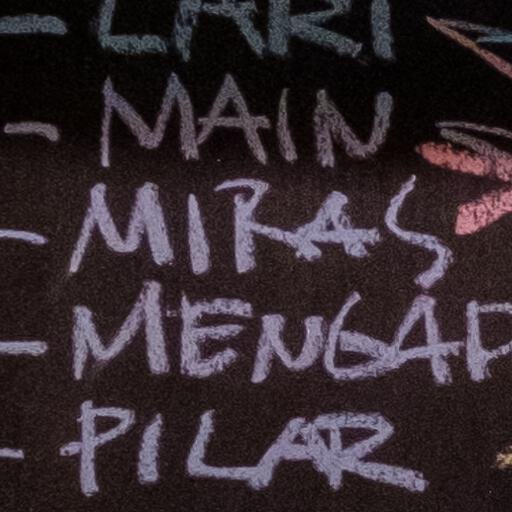 - LARI
- MAIN
- MIRAS
- MENGAP
- PILAR